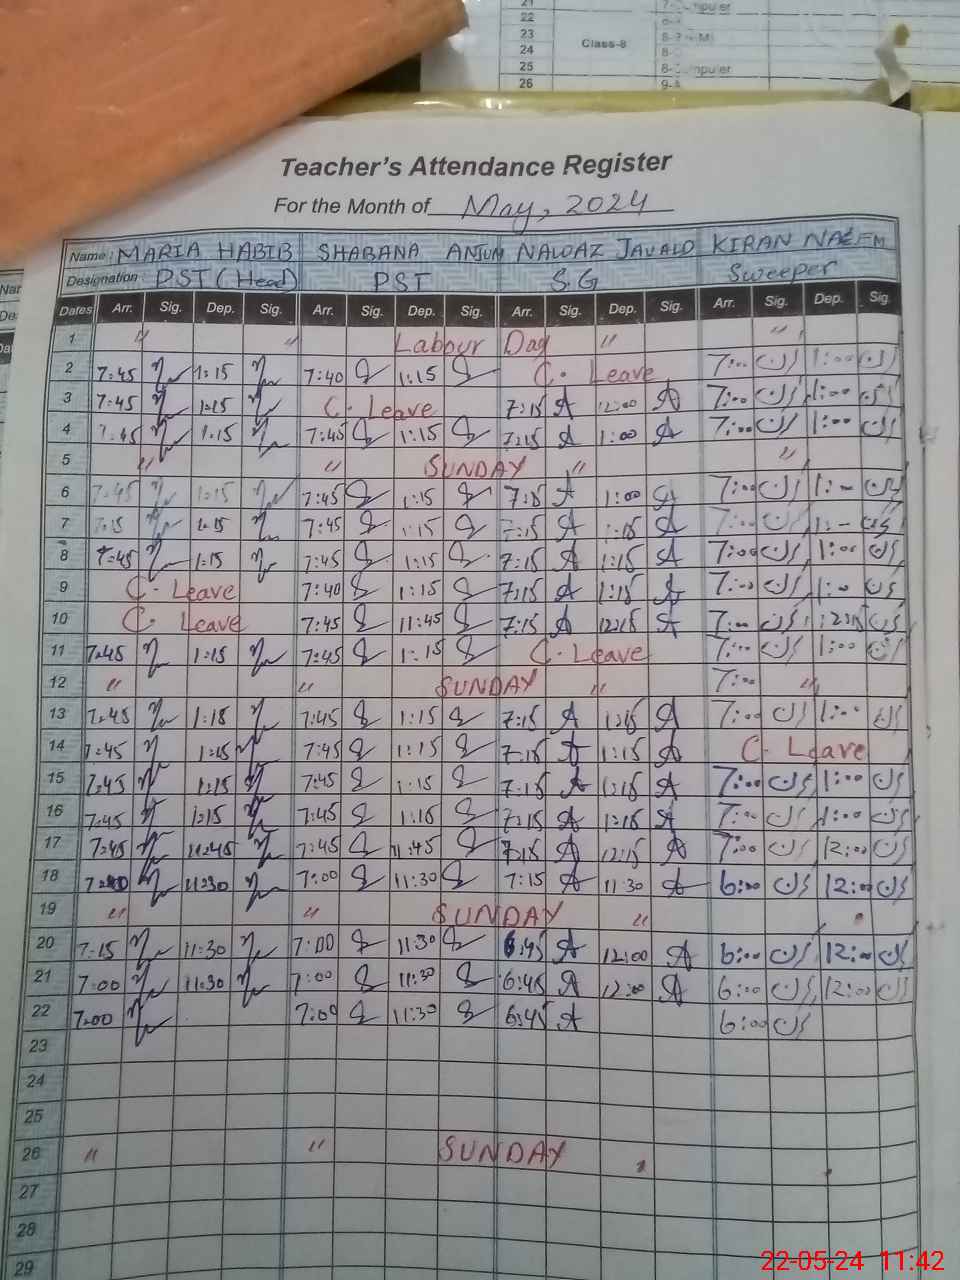 21
22
23 Class-8
24
25
26
Teacher's Attendance Register
For the Month of May, 2024
Name: MARIA HABIB SHABANA ANJUM NAWAZ JAVAID KIRAN NAEEM
Designation: PST (Head) PST S.G Sweeper
Dates Arr. Sig. Dep. Sig. Arr. Sig. Dep. Sig. Arr. Sig. Dep. Sig. Arr. Sig. Dep. Sig.
1 " " Labour Day " "
2 7:45 1:15 7:40 1:15 C. Leave 7:00 1:00
3 7:45 1:15 C. Leave 7:15 A 12:00 A 7:00 1:00
4 7:45 1:15 7:45 1:15 7:15 A 1:00 A 7:00 1:00
5 " " SUNDAY " "
6 7:45 1:15 7:45 1:15 7:15 A 1:00 A 7:00 1:00
7 7:15 1:15 7:45 1:15 7:15 A 1:15 A 7:00 1:00
8 7:45 1:15 7:45 1:15 7:15 A 1:15 A 7:00 1:00
9 C. Leave 7:40 1:15 7:15 A 1:15 A 7:00 1:00
10 C. Leave 7:45 11:45 7:15 A 12:15 A 7:00 12:15
11 7:45 1:15 7:45 1:15 C. Leave 7:00 1:00
12 " " SUNDAY " 7:00 "
13 7:45 1:15 7:45 1:15 7:15 A 1:15 A 7:00 1:00
14 7:45 1:15 7:45 1:15 7:15 A 1:15 A C. Leave
15 7:45 1:15 7:45 1:15 7:15 A 1:15 A 7:00 1:00
16 7:45 1:15 7:45 1:15 7:15 A 1:15 A 7:00 1:00
17 7:45 11:45 7:45 11:45 7:15 A 12:15 A 7:00 12:00
18 11:30 7:00 11:30 7:15 A 11:30 A 6:00 12:00
19 " " SUNDAY "
20 7:15 11:30 7:00 11:30 6:45 A 12:00 A 6:00 12:00
21 7:00 11:30 7:00 11:30 6:45 A 12:00 A 6:00 12:00
22 7:00 7:00 11:30 6:45 A 6:00
23
24
25
26 " " SUNDAY "
27
28
29
22-05-24 11:42